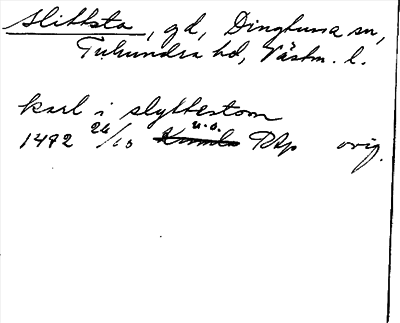 Slittsta, gd, Dingtuna sn,
Tuhundra hd, Västm. l.
karl i slyttestom
u.o.
1492 24/10 Kumla Dtp orig.